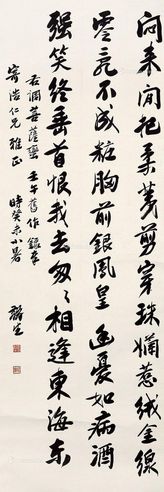 闲来闲把柔荑剪穿珠懒惹绒金线
零乱不成妆胸前银凤皇　幽忧如病酒
强笑终垂首恨我去匆匆相逢东海东
右调菩萨蛮壬午旧作录奉
寄浩仁兄雅正
时癸未小暑